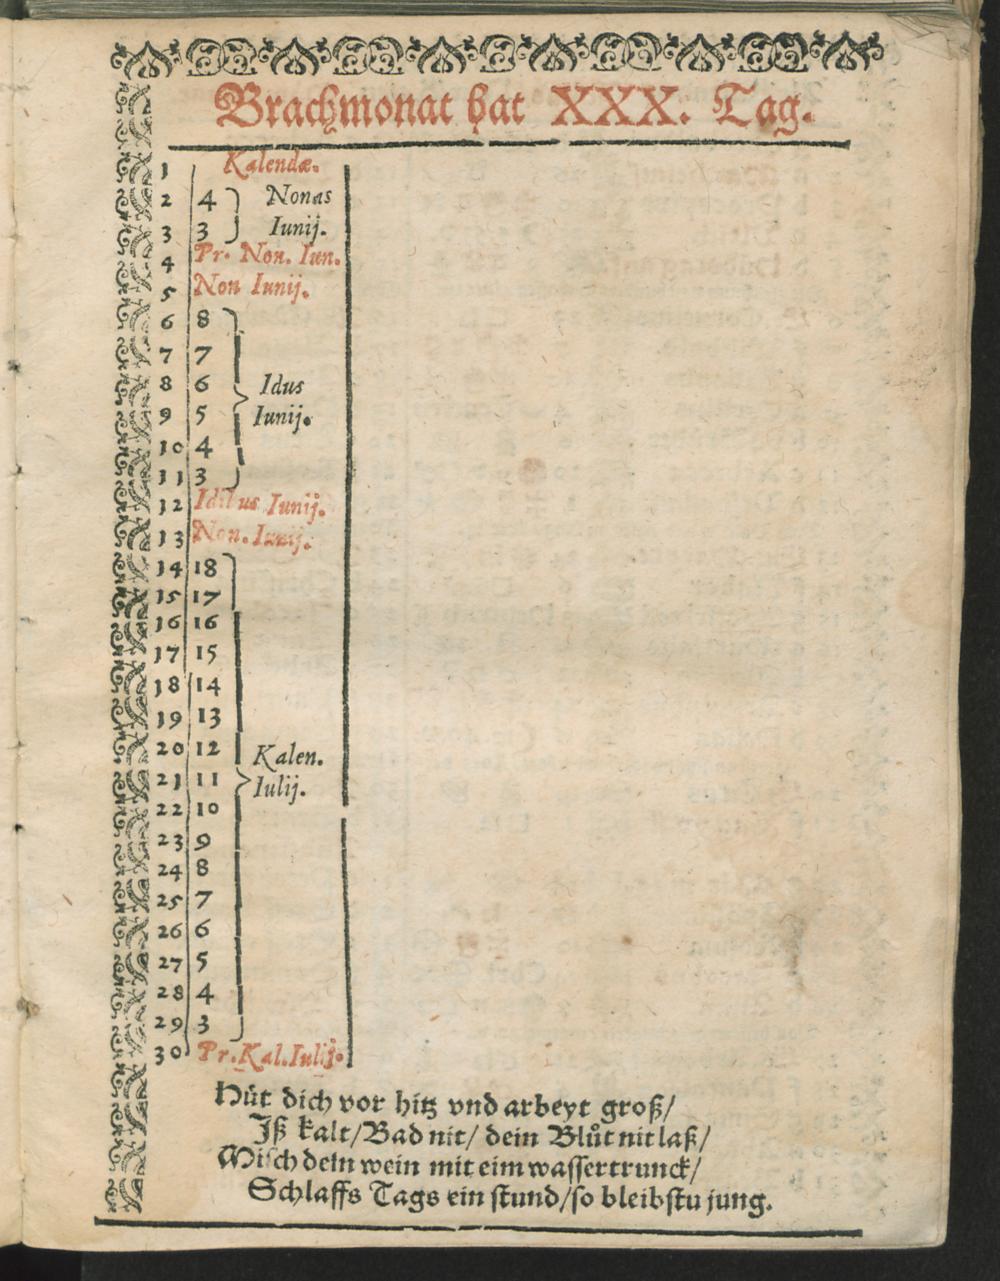 Brachmonat hat XXX. Tag.
1 Kalendæ.
2 4 Nonas
3 3 Iunij.
4 Pr. Non. Iun.
5 Non Iunij.
6 8
7 7
8 6 Idus
9 5 Iunij.
10 4
11 3
12 Idibus Iunij.
13 Non. Iunij.
14 18
15 17
16 16
17 15
18 14
19 13
20 12 Kalen.
21 11 Iulij.
22 10
23 9
24 8
25 7
26 6
27 5
28 4
29 3
30 Pr. Kal. Iulij.
Hüt dich vor hitz vnd arbeyt groß/
Jß kalt/Bad nit/ dein Blůt nit laß/
Misch dein wein mit eim wassertrunck/
Schlaffs Tags ein stund/so bleibstu jung.